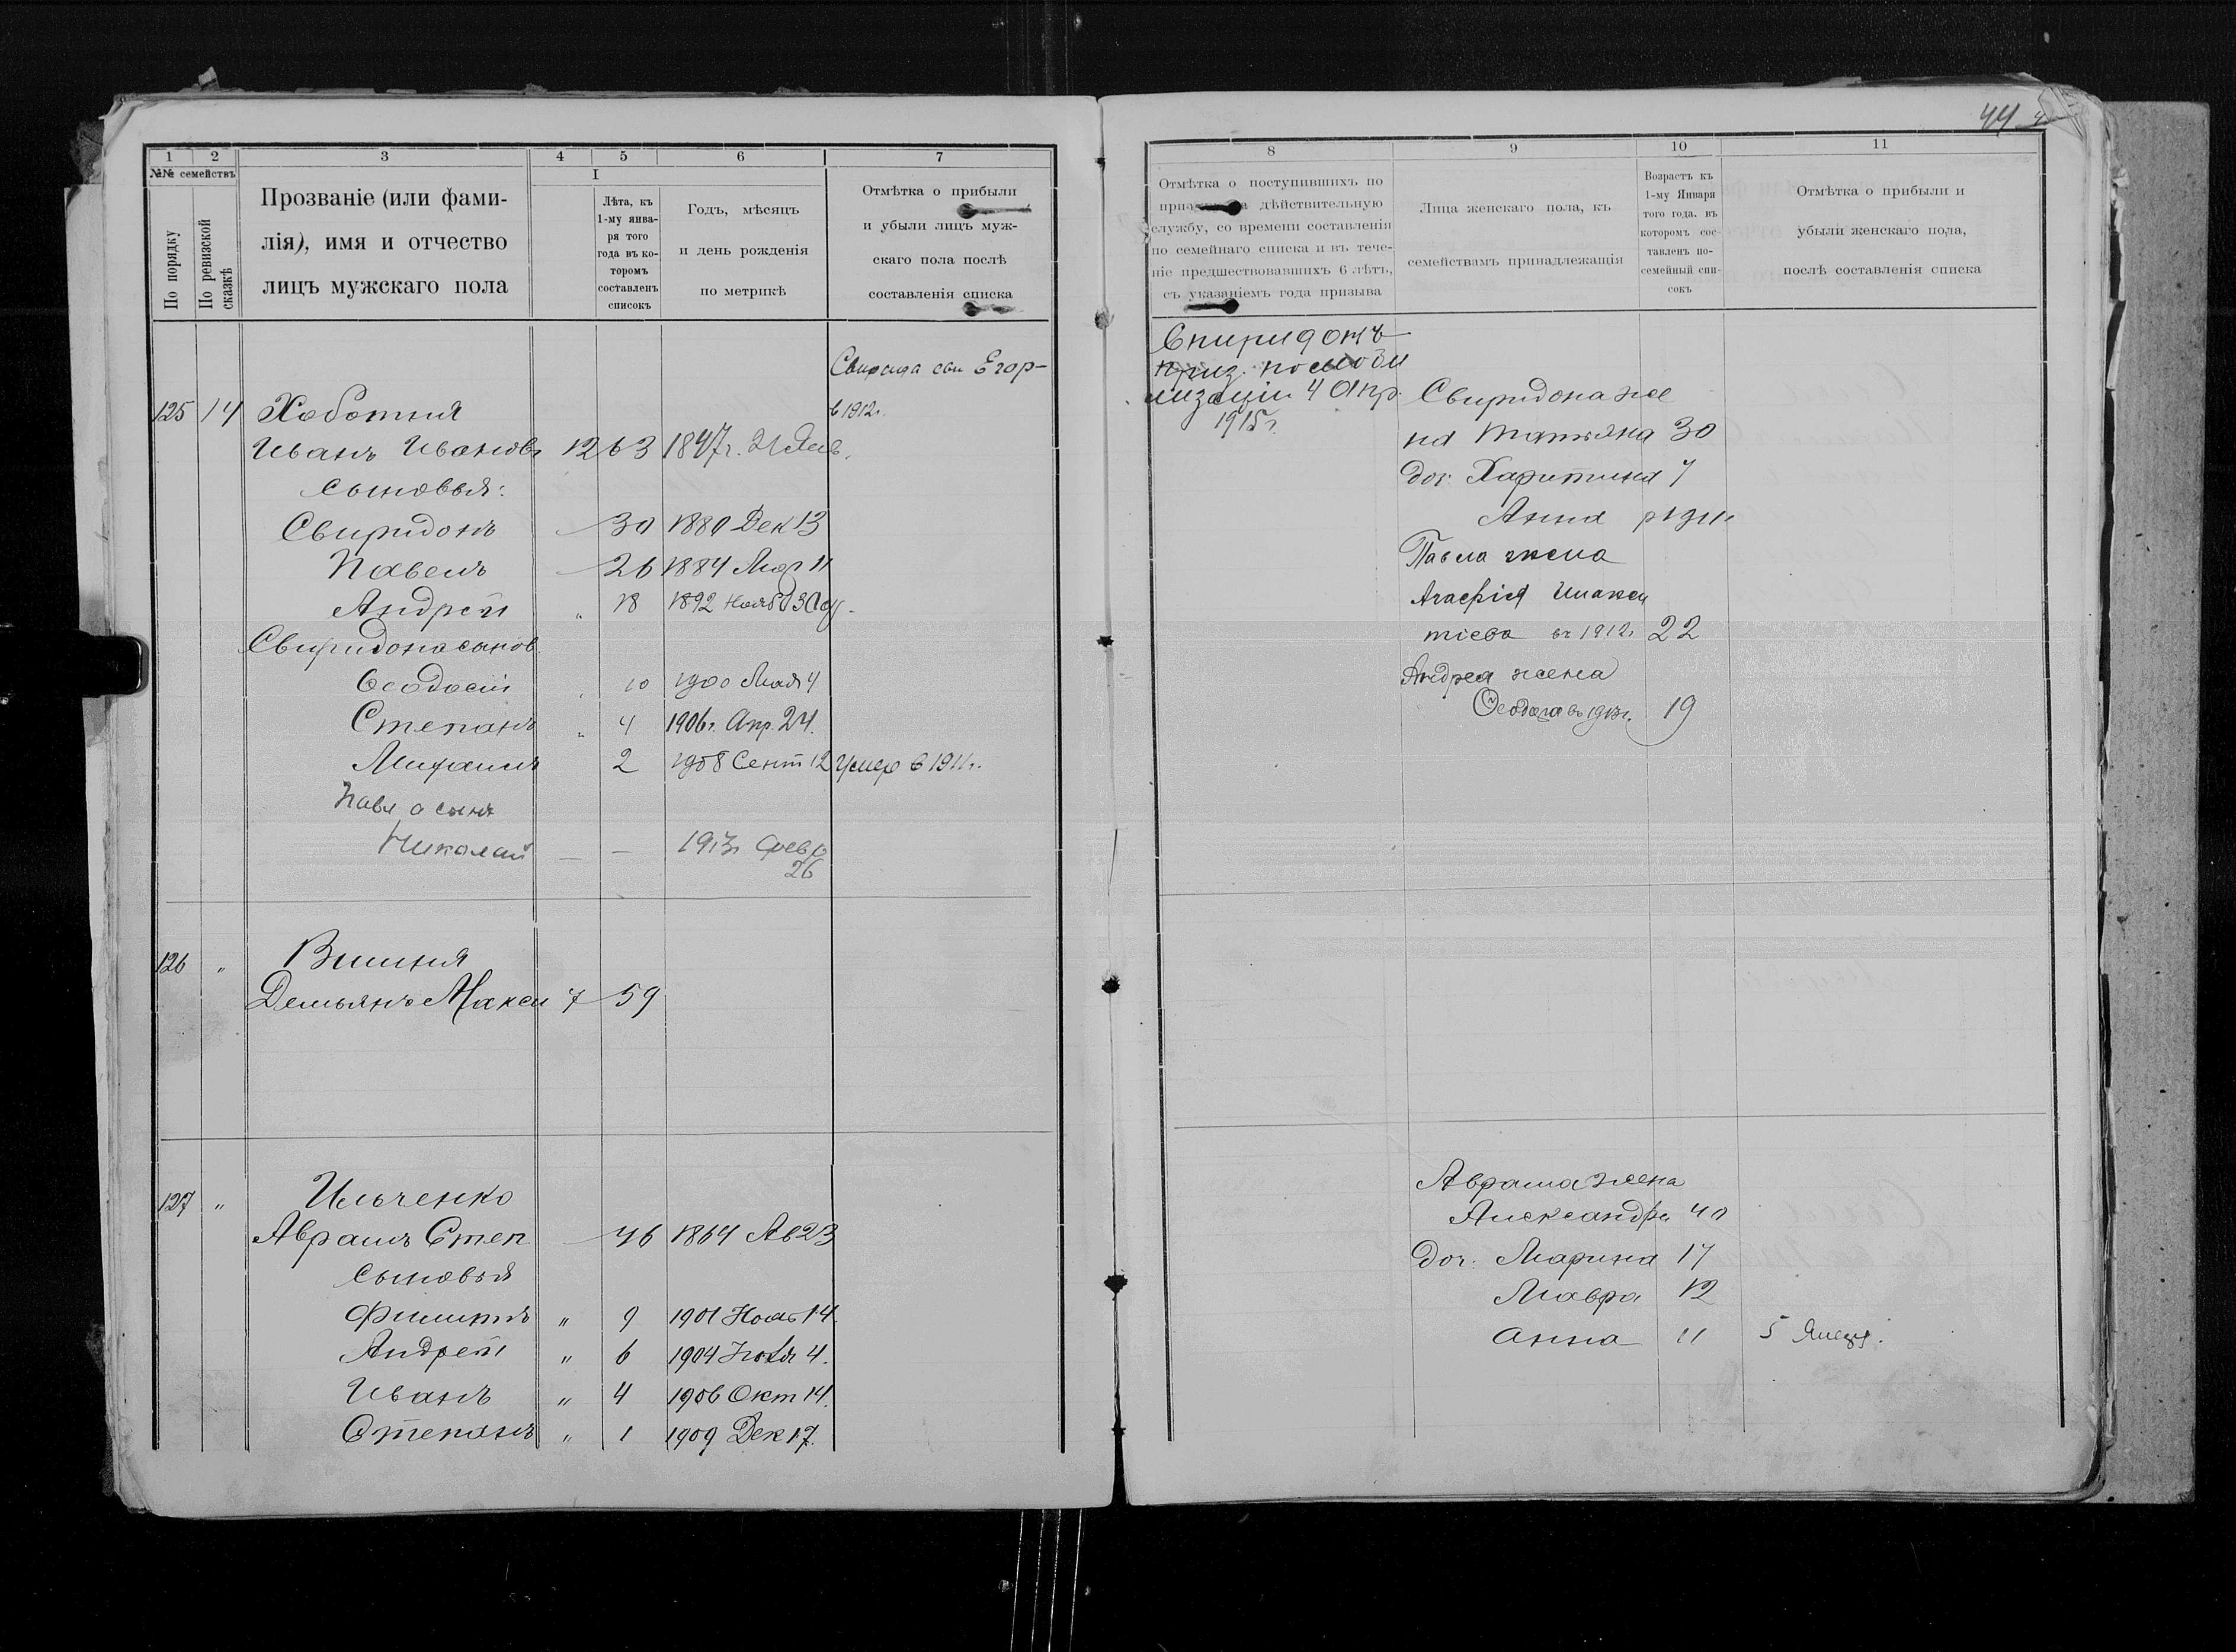 44
1 2 3 4 5 6 7
№№ семействъ
По порядку
По ревизской сказкѣ
Прозваніе (или фами-
лія), имя и отчество
лицъ мужскаго пола
I
Лѣта, къ
1-му янва-
ря того
года въ ко-
торомъ
составленъ
списокъ
Годъ, мѣсяцъ
и день рожденія
по метрикѣ
Отмѣтка о прибыли
и убыли лицъ муж-
скаго пола послѣ
составленія списка
Егор-
125 14 Хоботня в 1912г.
Иванъ Ивановъ 12 63 1847г. Янв.
сыновья:
Свиридонъ 30 1880 Дек 13
Павелъ 26 1884 Мар 11
Андрей „ 18 1892 Нояб
Свиридона сынов
Ѳеодосій 10 1900 Мая 4
Степанъ „ 4 1906г. Апр. 24.
Михаилъ 2 1908 Сент 12 Умер в 1911г.
Павла сынъ
Николай — — 1913г Февр
26
126 „ Вишня
Демьянъ Макси 7 59
127 „ Ильченко
Аврамъ Степ 46 1864 Ав 23
сыновья
Филиппъ „ 9 1901 Нояб 14.
Андрей „ 6 1904 4.
Иванъ „ 4 1906 Окт 14.
Степанъ „ 1 1909 Дек 17.
8 9 10 11
Отмѣтка о поступившихъ по
дѣйствительную
службу, со времени составленія
по семейнаго списка и въ тече-
ніе предшествовавшихъ 6 лѣтъ,
съ указаніемъ года призыва
Лица женскаго пола, къ
семействамъ принадлежащія
Возрастъ къ
1-му Января
того года. въ
которомъ сос-
тавленъ по-
семейный спи-
сокъ
Отмѣтка о прибыли и
убыли женскаго пола,
послѣ составленія списка
Спиридонъ
приз. по моби
лизаціи 4 Апр.
1915г.
Свиридона же
на Татьяна 30
Доч: Харитина 7
Анна р 1911г
Павла жена
Агафія Инакен
тіева въ 1912г. 22
Андрея жена
Ѳеодора въ 1913г. 19
Аврама жена
Александра 40
Доч: Марина 17
Мавра 12
Анна 11 5 Янв